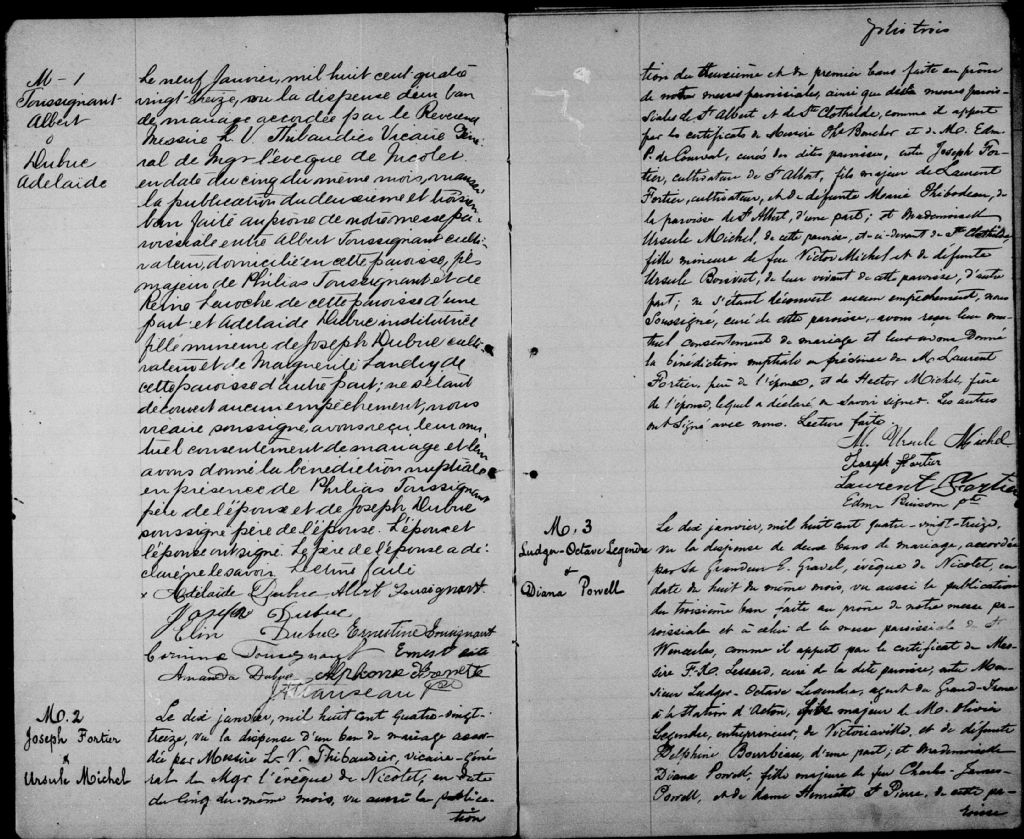 M - 1
Toussignant
Albert
&
Dubuc
Adelaide
Le neuf Janvier, mil huit cent quatre
vingt-treize, vu la dispense d'un ban
de mariage accordée par le Reverend
Messire L. V. Thibaudier Vicaire Géné
ral de Mgr l'évêque de Nicolet
en date du cinq du même mois, vu aussi
la publication du deuxieme et troisieme
ban faite au prône de notre messe pa-
roissiale entre Albert Toussignant culti-
vateur, domicilié en cette paroisse, fils
majeur de Philias Toussignant et de
Reine Laroche de cette paroisse d'une
part et Adelaide Dubuc institutrice
fille mineure de Joseph Dubuc culti-
vateur et de Marguerite Landry de
cette paroisse d'autre part; ne s'étant
découvert aucun empêchement, nous
vicaire soussigné, avons reçu leur mu-
tuel consentement de mariage et leur
avons donné la bénédiction nuptiale
en présence de Philias Toussignant
père de l'époux et de Joseph Dubuc
soussigné père de l'épouse. L'époux et
l'épouse ont signé. Le père de l'époux a dé-
claré ne le savoir. Lecture faite
x Adelaide Dubuc Albert Tousignant
Joseph Dubuc
Dubuc Ernestine Tousignant
Corinne Tousignant
Amanda Dubuc Alphonse
M. 2
Joseph Fortier
&
Ursule Michel
Le dix janvier, mil huit cent quatre-vingt-
treize, vu la dispense d'un ban de mariage accor-
dée par Messire L.-V. Thibaudier, vicaire-géné-
ral de Mgr l'évêque de Nicolet, en date
du cinq du même mois, vu aussi la publica-
tion
folio trois
tion du deuxième et du premier bans faite au prône
de notre messe paroissiale, ainsi que des messes parois-
siales de St Albert et de Ste Clothilde, comme il appert
par les certificats de Messire Ths Boucher et de M. Edm.
P. de Courval, curés des dites paroisses, entre Joseph For-
tier, cultivateur de St Albert, fils majeur de Laurent
Fortier, cultivateur, et de défunte Marie Thibodeau, de
la paroisse de St Albert, d'une part; et Mademoiselle
Ursule Michel, de cette paroisse, et-ci-devant de Ste Clothilde,
fille mineure de feu Victor Michel et de défunte
Ursule Boisvert, de leur vivant de cette paroisse, d'autre
part; ne s'étant découvert aucun empêchement, nous
soussigné, curé de cette paroisse, avons reçu leur mu-
tuel consentement de mariage et leur avons donné
la bénédiction nuptiale en présence de M. Laurent
Fortier, père de l'époux, et de Hector Michel, frère
de l'épouse, lequel a déclaré ne savoir signer. Les autres
ont signé avec nous. Lecture faite.
M. Ursule Michel
Joseph Fortier
Laurent Fortier
Edm. Buisson ptre
M. 3
Ludger-Octave Legendre
&
Diana Powell
Le dix janvier, mil huit cent quatre-vingt-treize,
vu la dispense de deux bans de mariage, accordée
par Sa Grandeur E. Gravel, évêque de Nicolet, en
date du huit du même mois, vu aussi la publication
du troisième ban faite au prône de notre messe pa-
roissiale et à celui de la messe paroissiale de St
Wenceslas, comme il appert par le certificat de Mes-
sire F.-X. Lessard, curé de la dite paroisse, entre Mon-
sieur Ludger-Octave Legendre, agent du Grand-Tronc
à la station d'Acton, fils majeur de M. Olivier
Legendre, entrepreneur, de Victoriaville, et de défunte
Delphine Bourbeau, d'une part; et Mademoiselle
Diana Powell, fille majeure de feu Charles-James
Powell, et de dame Henriette St Pierre, de cette pa-
roisse